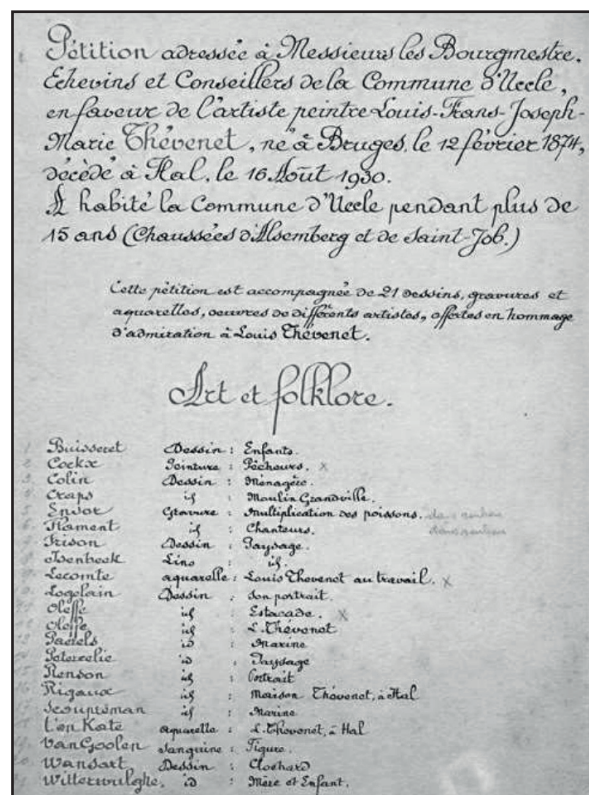 Pétition adressée à Messieurs les Bourgmestre,
Echevins et Conseillers de la Commune d'Uccle,
en faveur de l'artiste peintre Louis-Frans-Joseph-
Marie Thévenet, né à Bruges, le 12 février 1874,
décédé à Hal, le 16 Août 1930.
A habité la Commune d'Uccle pendant plus de
15 ans (Chaussées d'Alsemberg et de Saint-Job.)
Cette pétition est accompagnée de 21 dessins, gravures et
aquarelles, oeuvres de différents artistes, offertes en hommage
d'admiration à Louis Thévenet.
Art et folklore.
1 Buisseret Dessin : Enfants.
2 Cockx Peinture : Pêcheurs. x
3 Colin Dessin : Ménagère.
4 Craps id : Moulin Grandville.
5 Ensor Gravure : Multiplication des poissons.
6 Flament id : Chanteurs.
7 Frison Dessin : Paysage.
8 Isenbeek Lino : id.
9 Lecomte aquarelle : Louis Thevenet au travail. x
10 Logelain Dessin : son portrait.
11 Oleffe id : Estacade. x
12 Oleffe id : L. Thévenet
13 Pauels id : Marine
14 id : Paysage
15 Renson id : Portrait
16 Rigaux id : Maison Thévenet, à Hal
17 id : Marine
18 Ten Kate aquarelle : L. Thevenet, à Hal
19 Van Goolen Sanguine : Figure.
20 Wansart Dessin : Clochard
21 Witterwulghe. id : Mère et Enfant.